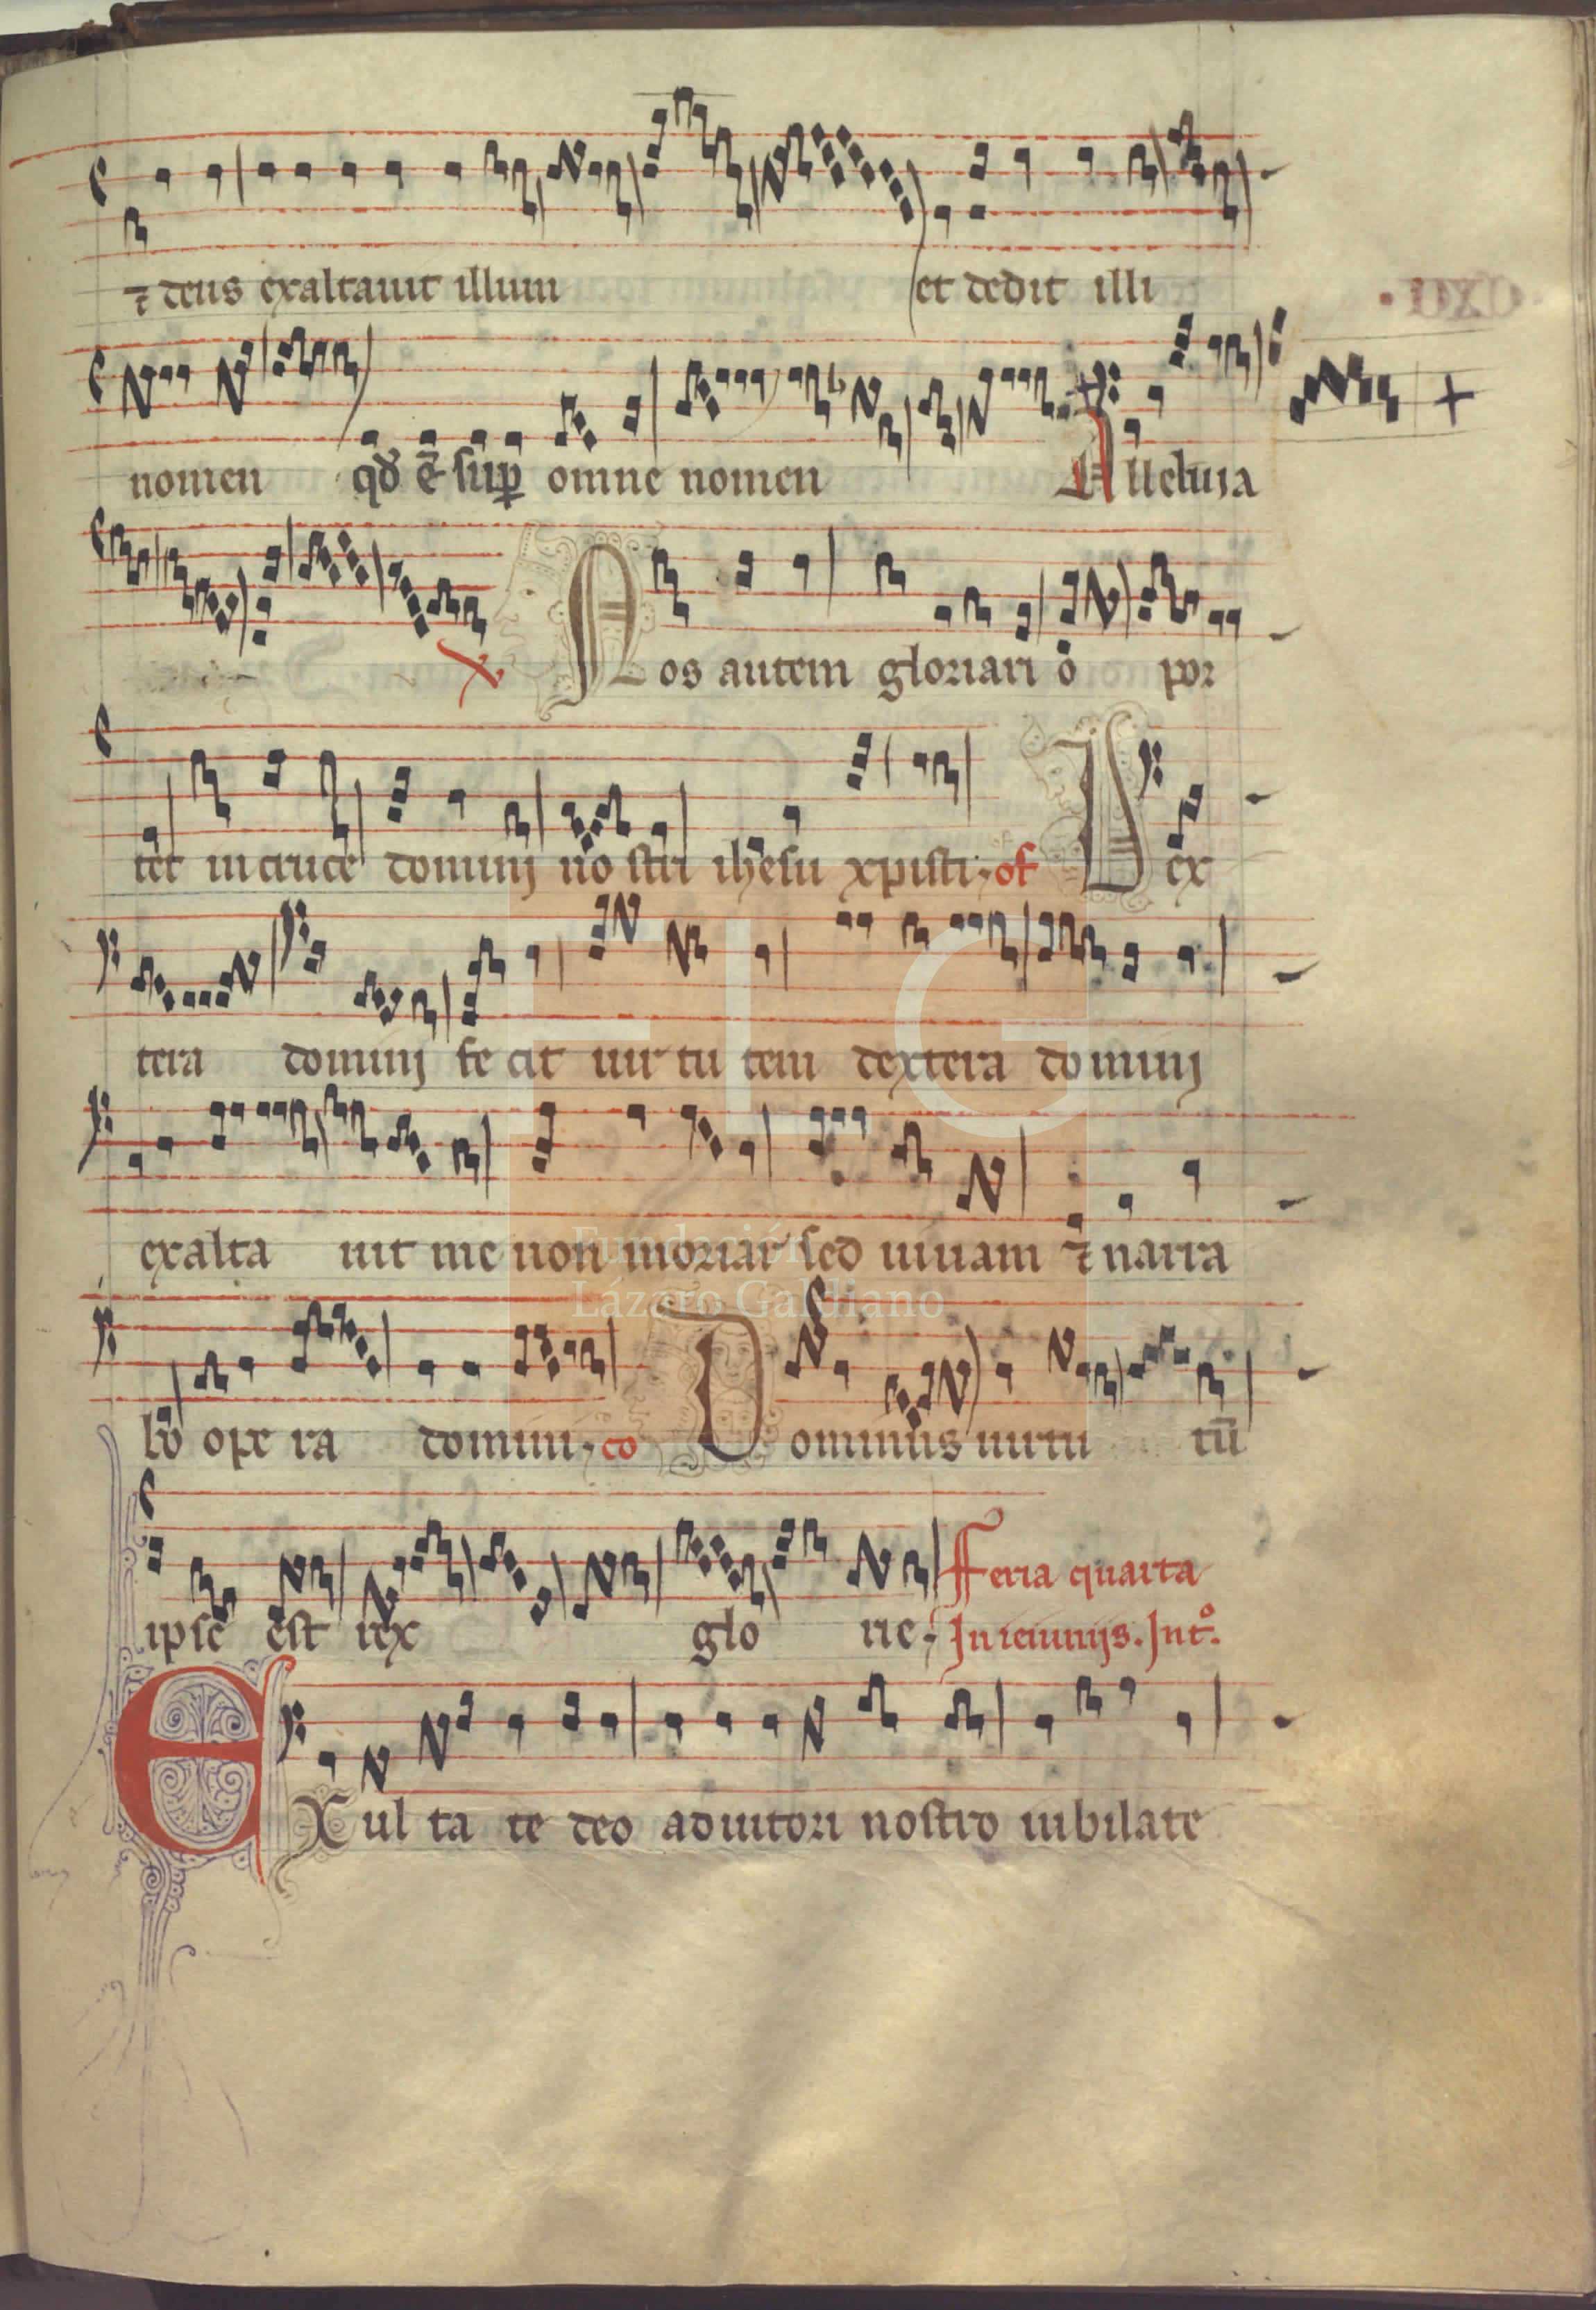 ⁊ deus exaltauit illum et dedit illi
nomen qđ ē sup̲ omne nomen Alleluia
Nos autem gloriari o por
tet in cruce domini no stri ihesu xpisti. of Dex
tera domini fe cit uir tu tem dextera domini
exalta uit me non moriar sed uiuam ⁊ narra
bo ope ra domini. co Dominus uirtu tū
ipse est rex glo rie. Feria quarta
In ieiunijs. Int°.
EXul ta te deo adiutori nostro iubilate
FLG
Fundación
Lázaro Galdiano